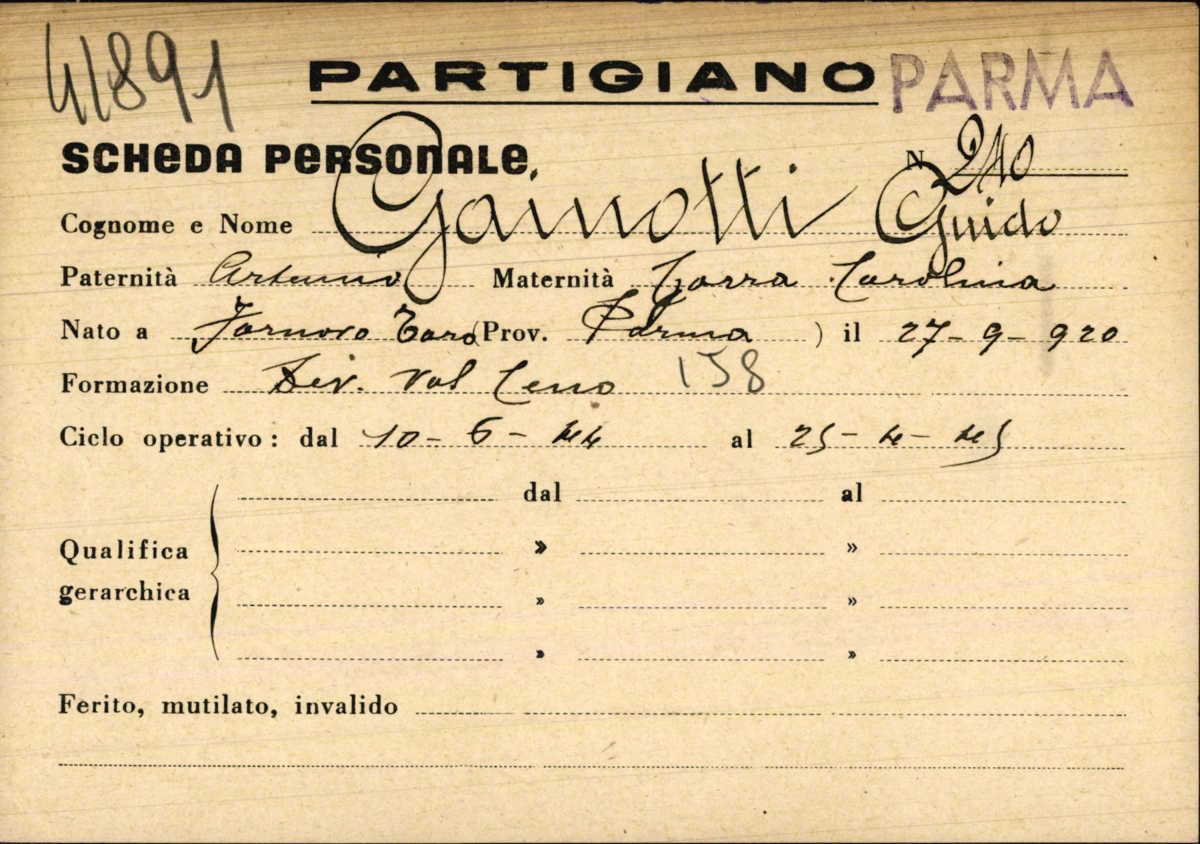 41891 PARTIGIANO PARMA
SCHEDA PERSONALE. N 210
Cognome e Nome Gainotti Guido
Paternità Artemio Maternità Zarra Carolina
Nato a Fornovo Taro (Prov. Parma ) il 27-9-920
Formazione Div. Val Ceno 158
Ciclo operativo: dal 10-6-44 al 25-4-45
dal al
Qualifica » »
gerarchica » »
» »
Ferito, mutilato, invalido